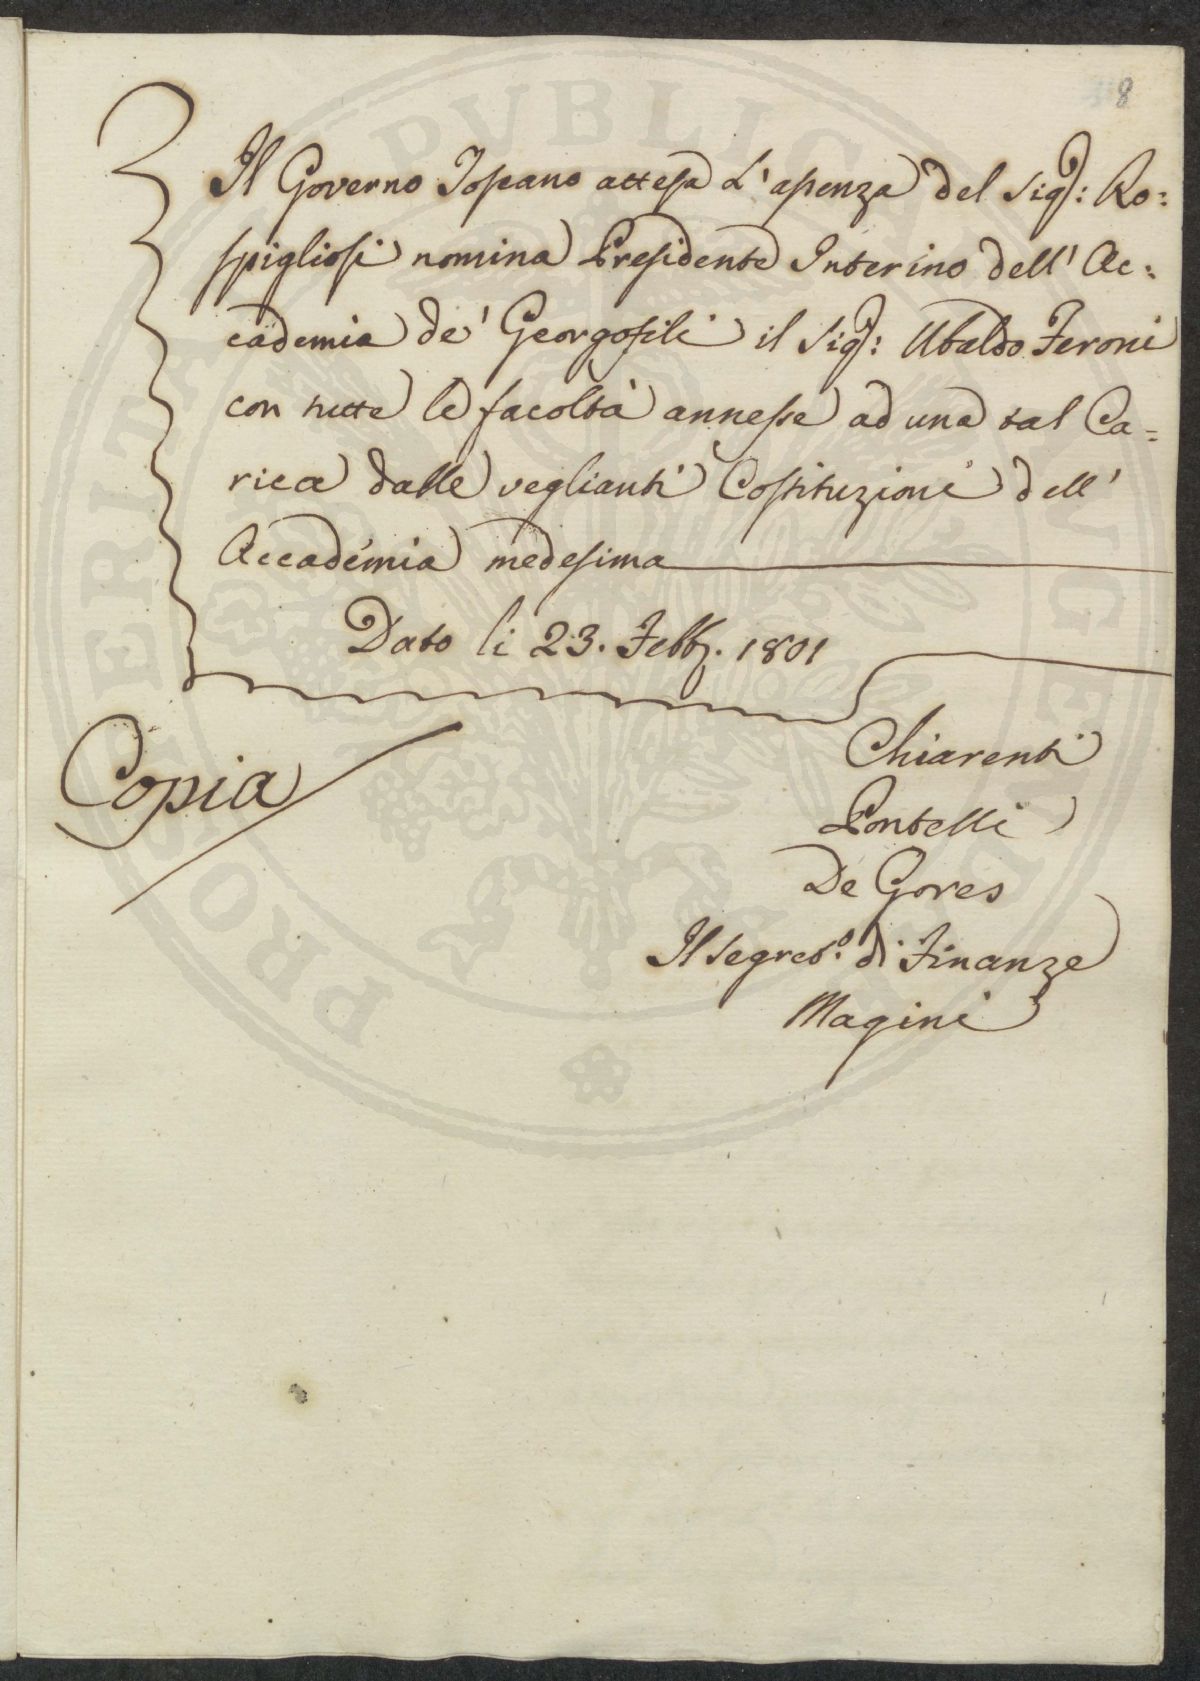 8
Il Governo Toscano attesa L'assenza del Sig.: Ro=
spigliosi nomina Presidente Interino dell' Ac=
cademia de' Georgofili il Sig.: Ubaldo Feroni
con tutte le facoltà annesse ad una tal Ca=
rica dalle veglianti Costituzioni dell'
Accademia medesima
Dato li 23. Febb. 1801
Copia
Chiarenti
Pontelli
De Gores
Il Segret.o di Finanze
Magini
PROSPERITATI PUBLICAE AUGENDAE